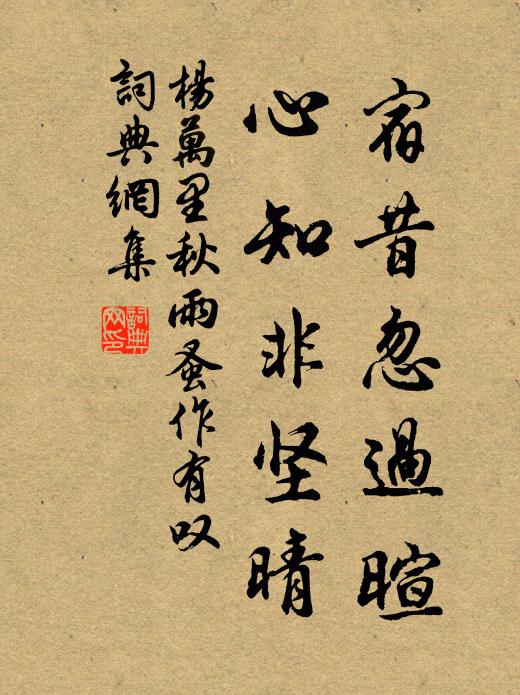 宿昔忽過暄
心知非坚晴
楊萬里秋雨蚤作有叹
詞典網集
詞典网印